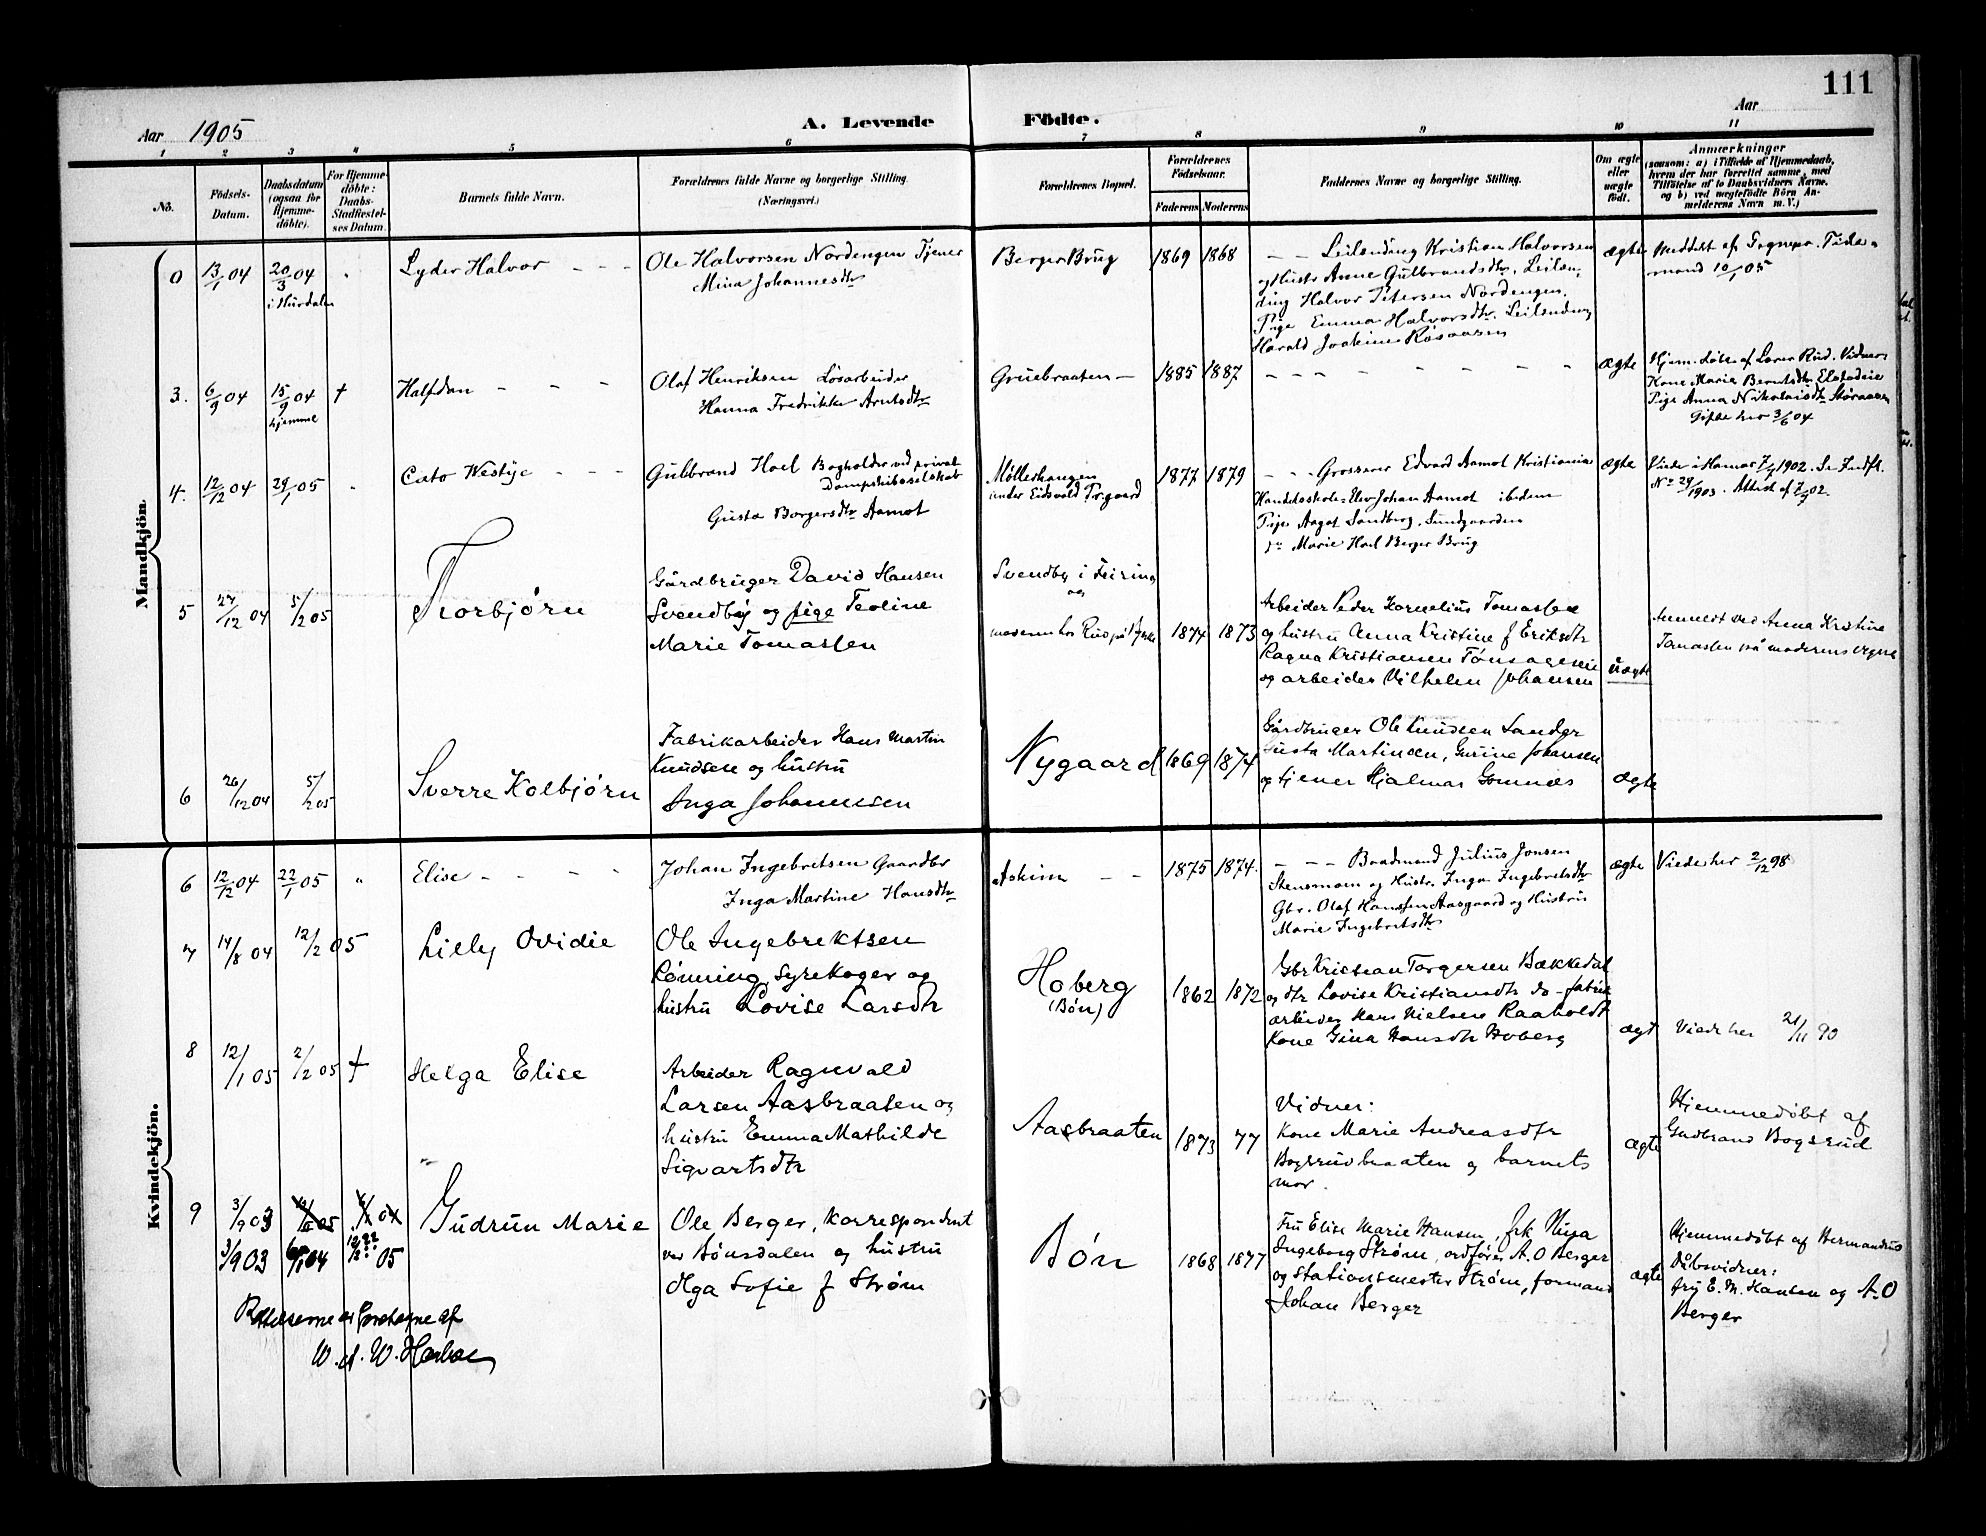 111
Aar 1905
A. Levende
Födte.
Aar
1 2 3 4 5 6 7 8 9 10 11
No.
Födsels-Datum.
Daabsdatum (ogsaa for Hjemme-döbte).
For Hjemme-döbte: Daabs-Stadfæstel-ses Datum.
Barnets fulde Navn.
Forældrenes fulde Navne og borgerlige Stilling.
(Næringsvei.)
Forældrenes Bopæl.
Forældrenes Födselsaar.
Faderens Moderens
Faddernes Navne og borgerlige Stilling.
Om ægte eller uægte födt.
Anmærkninger
(saasom: a) i Tilfælde af Hjemmedaab,
hvem der har forrettet samme, med
Tilföielse af to Daabsvidners Navne,
og b) ved uægtefödte Börn An-
melderens Navn m. V.)
Mandkjön.
0 13/1 04 20/3 04 i Hurdalen
Lyder Halvor
Ole Halvorsen Nordengen Tjener
Mina Johannesdtr
Berger Brug 1869 1868
Leilending Kristian Halvorsen
og Hustr Anne Gulbrandsdtr. Leilen-
ding Halvor Petersen Nordengen.
Pige Emma Halvorsdtr. Leilending
Harald Joakim Rosaasen
ægte
Meddelt af Sognepr. Tide-
mand 10/1 05
3. 6/9 04 15/9 04 hjemme †
Halfdan
Olaf Henriksen Løsarbeider
Hanna Fredrikke Arntsdtr
Gruebraaten 1885 1887
ægte
Hjem. døbt af Lærer Rud. Vidner:
Kone Marie Berntsdtr
Pige Anna Nikolaisdtr
Gifte her 3/6 04
4. 12/12 04 29/1 05
Cato Westye
Gulbrand Hoel Bogholder ved privat
Dampskibsselskab
Gusta Borgersdtr Aamot
Møllerhaugen
under Eidsvold Prgaard 1877 1879
Grosserer Edvard Aamot Kristiania
Handelsskole-Elev Johan Aamot ibidem
Pige Aagot Sandberg, Sundgaarden
Marie Hoel Berger Brug
ægte
Viede i Hamar 7/7 1902. Se Indfl.
No 29/1903. Attest af 7/7 02.
5 27/12 04 5/2 05
Torbjørn
Gårdbruger David Hansen
Svendby og pige Teoline
Marie Tomassen
Svendby i Feiring
og
moderen hos 1874 1873
Arbeider Peder Kornelius Tomassen
og hustru Anna Kristine f Eriksdtr
Ragna Kristiansen
og arbeider Vilhelm Johansen
uægte
Anmeldt ved Anna Kristine
Tomassen på moderens vegne
6 26/12 04 5/2 05
Sverre Kolbjørn
Fabrikarbeider Hans Martin
Knudsen og hustru
Inga Johannesen
Nygaard 1869 1874
Gårdbruger Ole Knudsen Sander
Gusta Martinsen, Gurine Johansen
og tjener Hjalmar Gomnæs
ægte
Kvindekjön.
6 12/12 04 22/1 05
Elise
Johan Ingebretsen Gaardbr
Inga Martine Hansdtr
Askim 1875 1874.
Baadmand Julius Jonsen
Stensmoen og Hustr. Inga Ingebretsdtr
Gbr. Olaf Hanssen Aasgaard og Hustru
Marie Ingebretsdtr
ægte
Viede her 2/12 98
7 14/8 04 12/2 05
Lilly Ovidie
Ole Ingebrektsen
Rønning, Syrekoger og
hustru Lovise Larsdtr
Hoberg
(Bøn) 1862 1872
Gbr Kristian Torgersen Bækkedal
og dtr Lovise Kristiansdtr do - fabrik
arbeider Hans Nielsen Raaholdt
Kone Gina Hansdtr Hoberg
ægt
Viede her 21/11 90
8 12/1 05 2/2 05 †
Helga Elise
Arbeider Ragnvald
Larsen Aasbraaten og
hustru Emma Mathilde
Sigvartsdtr
Aasbraaten 1873 77
Vidner:
Kone Marie Andreasdtr
Bogsrudbraaten og barnets
mor.
ægte
Hjemmedøbt af
Gudbrand Bogsrud
9 3/9 03
3/9 03 05
Gudrun Marie
Ole Berger, korrespondent
ved Bønsdalen og hustru
Olga Sofie f Strøm
Bøn 1868 1877
Fru Elise Marie Hansen, frk
Ingeborg Strøm, ordfører A. O Berger
og Stationsmester Strøm, formand
Johan Berger
ægte
Hjemmedøbt af Hermandus
Dåbsvidner:
fru E. M. Hansen og A. O
Berger
Rettelserne er foretagne af